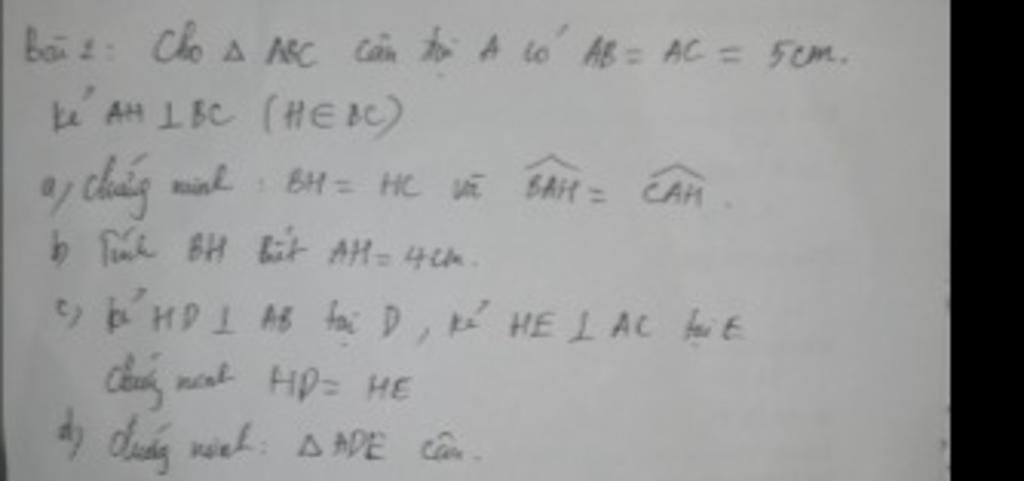 Bài 2: Cho Δ ABC cân tại A có AB = AC = 5cm.
kẻ AH ⊥ BC (H ∈ BC)
a, Chứng minh : BH = HC và \widehat{BAH} = \widehat{CAH}.
b, Tính BH biết AH = 4cm.
c, kẻ HD ⊥ AB tại D, kẻ HE ⊥ AC tại E
Chứng minh HD = HE
d, Chứng minh: Δ ADE cân.